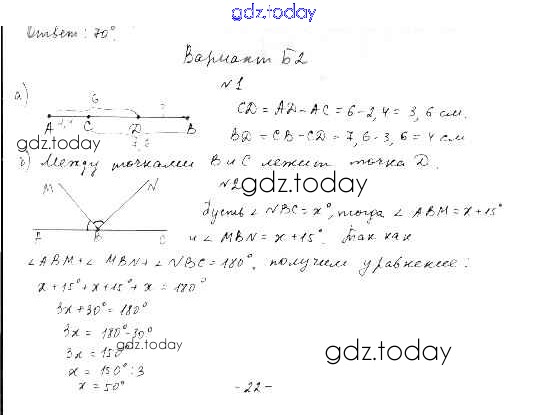 gdz.today
Ответ: 70°.
Вариант Б2
№1
а)
6
?
A C D B
7,6
CD = AD - AC = 6 - 2,4 = 3,6 см.
BD = CB - CD = 7,6 - 3,6 = 4 см
gdz.today
б) Между точками В и С лежит точка D.
№2
gdz.today
M N
A B C
Пусть ∠NBC = x°, тогда ∠ABM = x + 15°
и ∠MBN = x + 15°. Так как
∠ABM + ∠MBN + ∠NBC = 180°, получим уравнение:
x + 15° + x + 15° + x = 180°
3x + 30° = 180°
3x = 180° - 30°
gdz.today
3x = 150°
gdz.today
x = 150° : 3
x = 50°
- 22 -